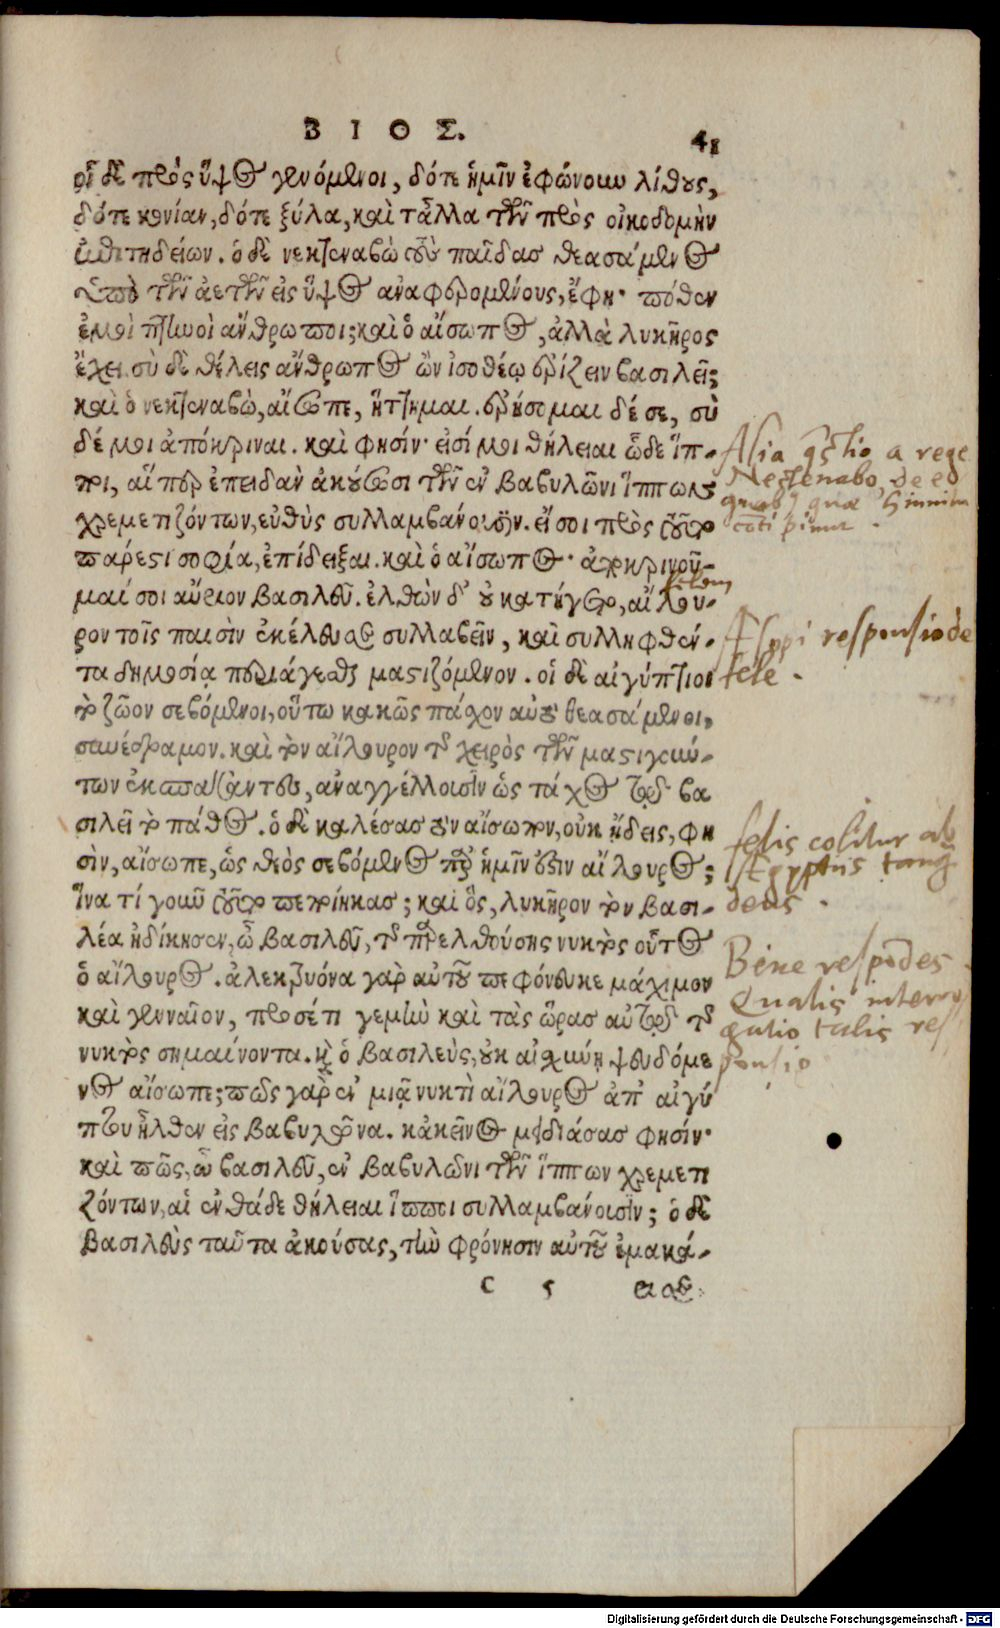 ΒΙΟΣ.
41
οἱ δὲ πρὸς ὕψος γενόμενοι, δότε ἡμῖν ἐφώνουν λίθους,
δότε κονίαν, δότε ξύλα, καὶ τἆλλα τῶν πρὸς οἰκοδομὴν
ἐπιτηδείων. ὁ δὲ νεκτεναβὼ τοὺς παῖδας θεασάμενος
ὑπὸ τῶν ἀετῶν εἰς ὕψος ἀναφερομένους, ἔφη· πόθεν
ἐμοὶ πτηνοὶ ἄνθρωποι; καὶ ὁ αἴσωπος, ἀλλὰ λυκῆρος
ἔχει. σὺ δὲ θέλεις ἄνθρωπος ὢν ἰσοθέῳ ἐρίζειν βασιλεῖ;
καὶ ὁ νεκτεναβὼ, αἴσωπε, ἥττημαι. ἐρήσομαι δέ σε, σὺ
δέ μοι ἀπόκριναι. καὶ φησίν· εἰσί μοι θήλειαι ὧδε ἵπ-
ποι, αἵπερ ἐπειδὰν ἀκούσωσι τῶν ἐν βαβυλῶνι ἵππων
χρεμετιζόντων, εὐθὺς συλλαμβάνουσιν. εἴ σοι πρὸς τοῦτο
πάρεστι σοφία, ἐπίδειξαι. καὶ ὁ αἴσωπος· ἀποκρινοῦ-
μαί σοι αὔριον βασιλεῦ. ἐλθὼν δ' οὗ κατήγετο, αἴλου-
ρον τοῖς παισὶν ἐκέλευσε συλλαβεῖν, καὶ συλληφθέν-
τα δημοσίᾳ περιάγεσθαι μαστιζόμενον. οἱ δὲ αἰγύπτιοι
τὸ ζῶον σεβόμενοι, οὕτω κακῶς πάσχον αὐτὸ θεασάμενοι,
συνέδραμον. καὶ τὸν αἴλουρον τῆς χειρὸς τῶν μαστιγούν-
των ἐκσπάσαντες, ἀναγγέλλουσιν ὡς τάχος τῷ βα
σιλεῖ τὸ πάθος. ὁ δὲ καλέσας τὸν αἴσωπον, οὐκ ᾔδεις, φη
σὶν, αἴσωπε, ὡς θεὸς σεβόμενος παρ' ἡμῖν ἐστιν αἴλουρος;
ἵνα τί γοῦν τοῦτο πεποίηκας; καὶ ὃς, λυκῆρον τὸν βασι-
λέα ἠδίκησεν, ὦ βασιλεῦ, τῆς παρελθούσης νυκτὸς οὗτος
ὁ αἴλουρος. ἀλεκτρυόνα γὰρ αὐτοῦ πεφόνευκε μάχιμον
καὶ γενναῖον, προσέτι γε μὴν καὶ τὰς ὥρας αὐτῷ τῆς
νυκτὸς σημαίνοντα. καὶ ὁ βασιλεὺς, οὐκ αἰσχύνῃ ψευδόμε
νος αἴσωπε; πῶς γὰρ ἐν μιᾷ νυκτὶ αἴλουρος ἀπ' αἰγύ
πτου ἦλθεν εἰς βαβυλῶνα. κἀκεῖνος μειδιάσας φησίν·
καὶ πῶς, ὦ βασιλεῦ, ἐν βαβυλῶνι τῶν ἵππων χρεμετι
ζόντων, αἱ ἐνθάδε θήλειαι ἵπποι συλλαμβάνουσιν; ὁ δὲ
βασιλεὺς ταῦτα ἀκούσας, τὴν φρόνησιν αὐτοῦ ἐμακά-
c 5 ρισε.
felem
Alia qstio a rege
Nectenabo, de eq
quab quae hinnitu
Aesopi responsio de
fele.
felis colitur ab
Aegyptiis tanq
deus.
Bene respōdes
Qualis interro
gatio talis res
ponsio
Digitalisierung gefördert durch die Deutsche Forschungsgemeinschaft - DFG